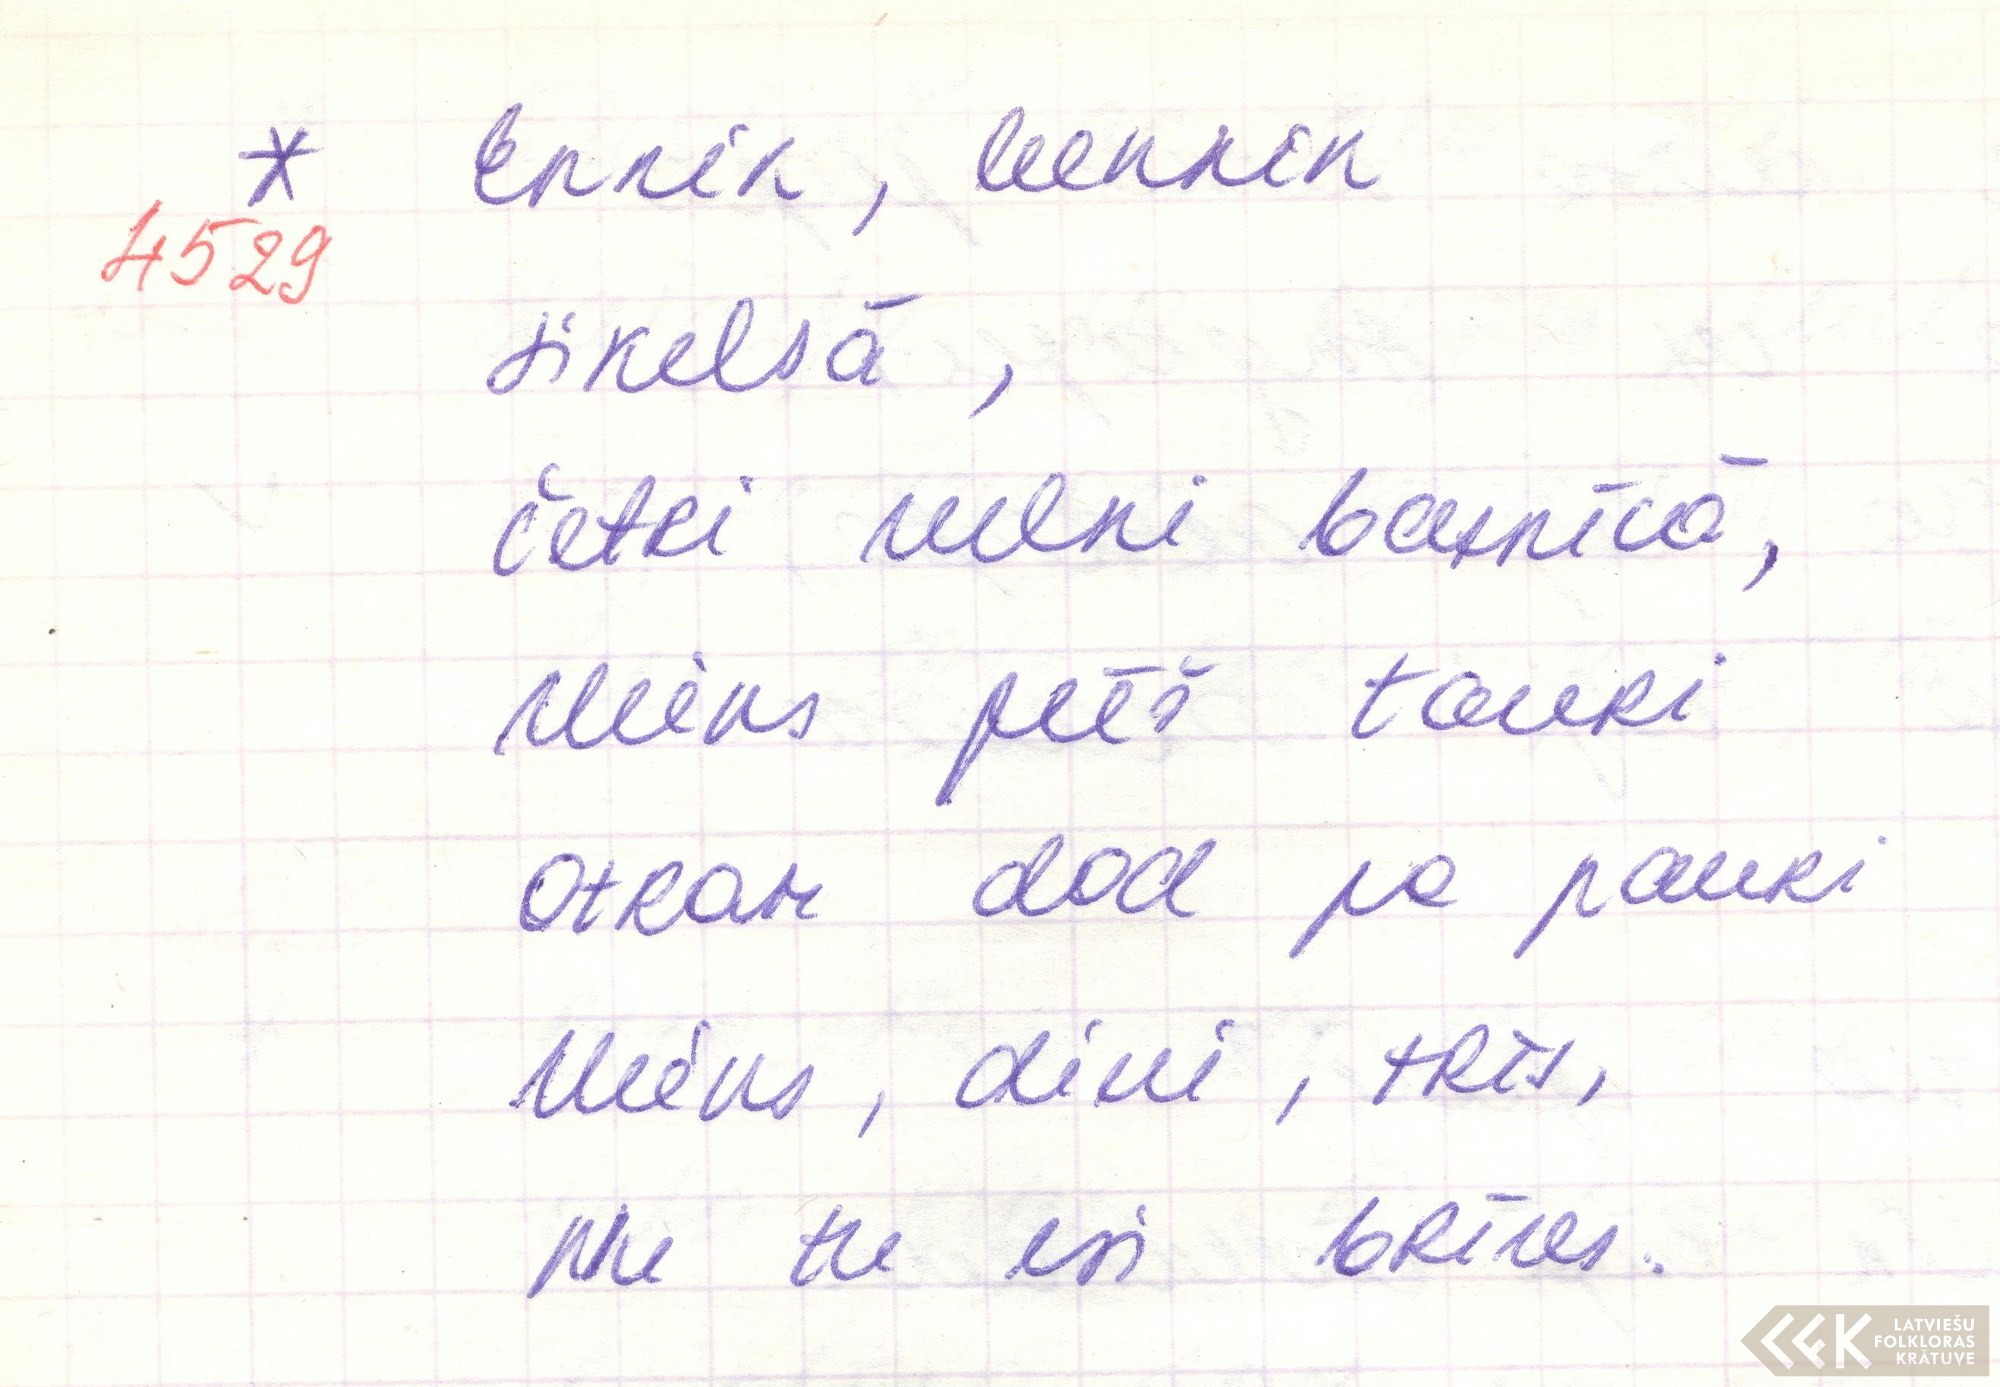 * Ennik, bennik
4529
sikelsā,
četri velni baznīcā,
viens pūš tauri
otram dod pa pauri
viens, divi, trīs,
nu tu esi brīvs.
LATVIEŠU
FOLKLORAS
KRĀTUVE